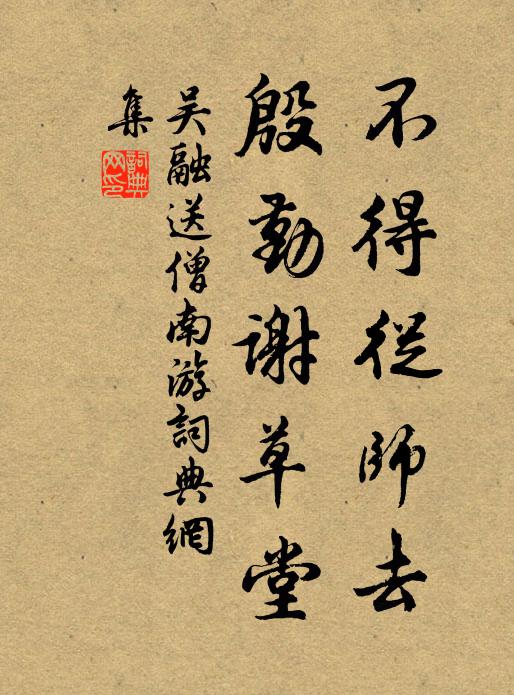 不得從師去
殷勤謝草堂
吴融送僧南游詞典網
集
詞典
网印